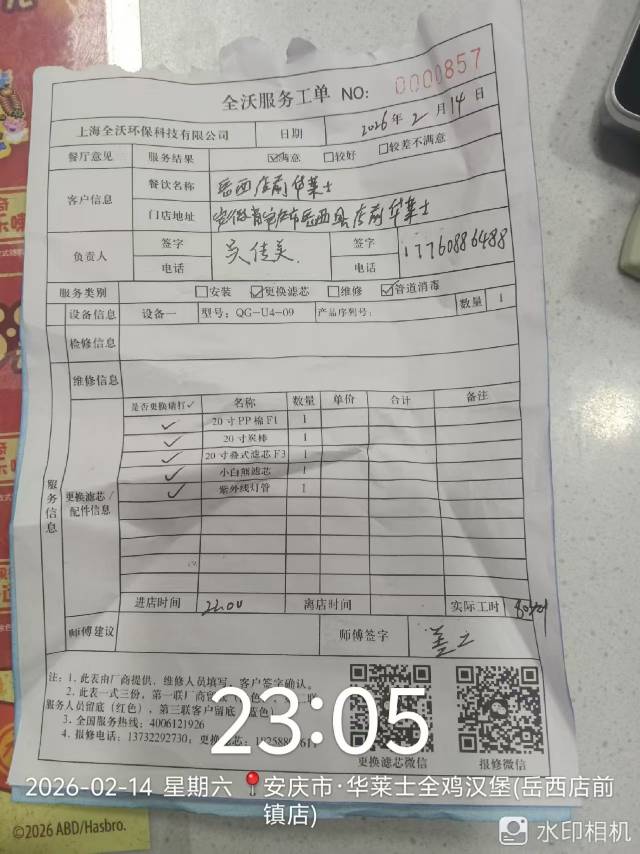 全沃服务工单 NO: 0000857
上海全沃环保科技有限公司 日期 2026年2月14日
餐厅意见 服务结果 ☑满意 □较好 □较差不满意
客户信息 餐饮名称 岳西店前华莱士
门店地址 安徽省安庆市岳西县店前华莱士
负责人 签字 吴佳美 签字 17760886488
电话 电话
服务类别 □安装 ☑更换滤芯 □维修 ☑管道消毒
设备信息 设备一 型号: QG-U4-09 产品序列号: 数量 1
检修信息
维修信息
服务信息
更换滤芯/配件信息
是否更换请打✓ 名称 数量 单价 合计 备注
✓ 20寸PP棉F1 1
✓ 20寸炭棒 1
✓ 20寸叠式滤芯F3 1
✓ 小白熊滤芯 1
✓ 紫外线灯管 1
进店时间 22:00 离店时间 实际工时
师傅建议 师傅签字
注: 1. 此表由厂商提供, 维修人员填写, 客户签字确认。
2. 此表一式三份, 第一联厂商留
服务人员留底 (红色), 第三联客户留底 (蓝色)
3. 全国服务热线: 4006121926
4. 报修电话: 13732292730; 更换滤芯:
更换滤芯微信 报修微信
23:05
2026-02-14 星期六 安庆市·华莱士全鸡汉堡(岳西店前
镇店)
©2026 ABD/Hasbro.
水印相机